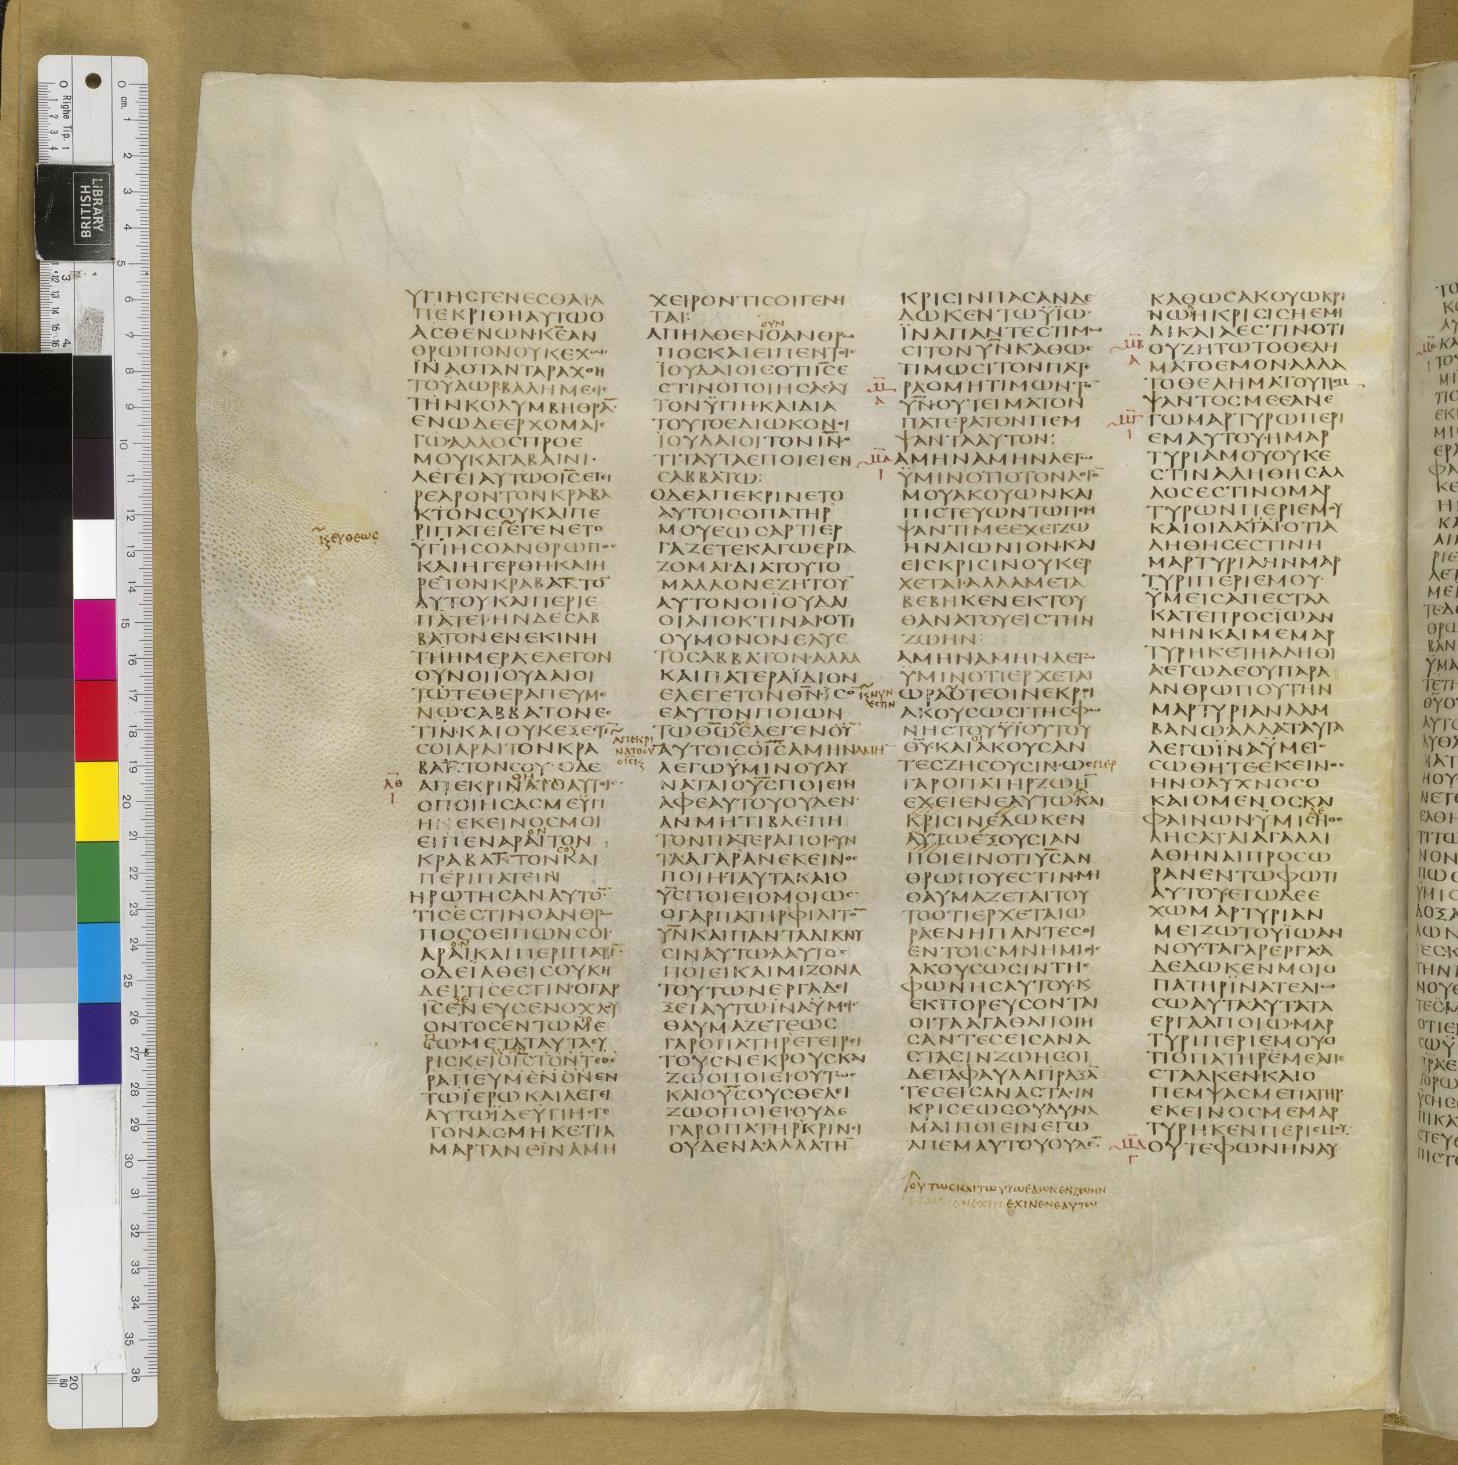 ΥΓΙΗCΓΕΝΕCΘΑΙΑ
ΠΕΚΡΙΘΗΑΥΤΩΟ
ΑCΘΕΝΩΝΚ̅Ε̅ΑΝ
ΘΡΩΠΟΝΟΥΚΕΧΩ
ΪΝΑΟΤΑΝΤΑΡΑΧΘΗ
ΤΟΥΔΩΡΒΑΛΗΜΕΕΙC
ΤΗΝΚΟΛΥΜΒΗΘΡΑ̅
ΕΝΩΔΕΕΡΧΟΜΑΙΕ
ΓΩΑΛΛΟCΠΡΟΕ
ΜΟΥΚΑΤΑΒΑΙΝΙ
ΛΕΓΕΙΑΥΤΩΟΙ̅C̅ΕΓΕΙ
ΡΕΑΡΟΝΤΟΝΚΡΑΒΑ
ΚΤΟΝCΟΥΚΑΙΠΕ
ΡΙΠΑΤΕΙΕΓΕΝΕΤΟ
ΫΓΙΗCΟΑΝΘΡΩΠΟC
ΚΑΙΗΓΕΡΘΗΚΑΙΗ
ΡΕΤΟΝΚΡΑΒΑΚΤΟ̅
ΑΥΤΟΥΚΑΙΠΕΡΙΕ
ΠΑΤΕΙΗΝΔΕCΑΒ
ΒΑΤΟΝΕΝΕΚΙΝΗ
ΤΗΗΜΕΡΑΕΛΕΓΟΝ
ΟΥΝΟΙΙΟΥΔΑΙΟΙ
ΤΩΤΕΘΕΡΑΠΕΥΜΕ
ΝΩCΑΒΒΑΤΟΝΕ
CΤΙΝΚΑΙΟΥΚΕΞΕCΤΙ̅
CΟΙΑΡΑΙΤΟΝΚΡΑ
ΒΑΚΤΟΝCΟΥΟΔΕ
ΑΠΕΚΡΙΝΑΤΟΑΥΤΟΙC
ΟΠΟΙΗCΑCΜΕΥΓΙ
ΗΕΚΕΙΝΟCΜΟΙ
ΕΙΠΕΝΑΡΑΙΤΟΝ
ΚΡΑΒΑΚΤΟΝΚΑΙ
ΠΕΡΙΠΑΤΕΙΝ
ΗΡΩΤΗCΑΝΑΥΤΟ̅
ΤΙCΕCΤΙΝΟΑΝΘΡΩ
ΠΟCΟΕΙΠΩΝCΟΙ
ΑΡΑΙΚΑΙΠΕΡΙΠΑΤΕΙ
ΟΔΕΪΑΘΕΙCΟΥΚΗ
ΔΕΙΤΙCΕCΤΙΝΟΓΑΡ
Ι̅C̅ΕΝΕΥCΕΝΟΧΛΟΥ
ΟΝΤΟCΕΝΤΩΜΕ
CΩΜΕΤΑΤΑΥΤΑΕΥ
ΡΙCΚΕΙΟΙ̅C̅ΤΟΝΤΕΘΕ
ΡΑΠΕΥΜΕΝΟΝΕΝ
ΤΩΪΕΡΩΚΑΙΛΕΓΕΙ
ΑΥΤΩΪΔΕΫΓΙΗCΓΕ
ΓΟΝΑCΜΗΚΕΤΙΑ
ΜΑΡΤΑΝΕΪΝΑΜΗ
ΙCΕΥΘΕΩC
ΑΠΕΚΡΙ
ΝΑΤΟΟΥ
ΟΙC
ΛΘ
Ι
ΧΕΙΡΟΝΤΙCΟΙΓΕΝΗ
ΤΑΙ:
ΟΥΝ
ΑΠΗΛΘΕΝΟΑΝΘΡΩ
ΠΟCΚΑΙΕΙΠΕΝΤΟΙC
ΙΟΥΔΑΙΟΙCΟΤΙΙ̅C̅Ε
CΤΙΝΟΠΟΙΗCΑCΑΥ
ΤΟΝΫΓΙΗΚΑΙΔΙΑ
ΤΟΥΤΟΕΔΙΩΚΟΝΟΙ
ΙΟΥΔΑΙΟΙΤΟΝΙ̅Ν̅Ο
ΤΙΤΑΥΤΑΕΠΟΙΕΙΕΝ
CΑΒΒΑΤΩ:
ΟΔΕΑΠΕΚΡΙΝΕΤΟ
ΑΥΤΟΙCΟΠΑΤΗΡ
ΜΟΥΕΩCΑΡΤΙΕΡ
ΓΑΖΕΤΕΚΑΓΩΕΡΓΑ
ΖΟΜΑΙΔΙΑΤΟΥΤΟ
ΜΑΛΛΟΝΕΖΗΤΟΥ̅
ΑΥΤΟΝΟΙΪΟΥΔΑΙ
ΟΙΑΠΟΚΤΙΝΑΙΟΤΙ
ΟΥΜΟΝΟΝΕΛΥΕ
ΤΟCΑΒΒΑΤΟΝΑΛΛΑ
ΚΑΙΠΑΤΕΡΑΪΔΙΟΝ
ΕΛΕΓΕΤΟΝΘ̅Ν̅ΙCΟ̅
ΕΑΥΤΟΝΠΟΙΩΝ
ΤΩΘ̅Ω̅ΕΛΕΓΕΝΟΥ̅
ΑΥΤΟΙCΟΙ̅C̅ΑΜΗΝΑΜΗ̅
ΛΕΓΩΫΜΙΝΟΥΔΥ
ΝΑΤΑΙΟΥ̅C̅ΠΟΙΕΙΝ
ΑΦΕΑΥΤΟΥΟΥΔΕΝ
ΑΝΜΗΤΙΒΛΕΠΗ
ΤΟΝΠΑΤΕΡΑΠΟΙΟΥΝ
ΤΑΑΓΑΡΑΝΕΚΕΙΝΟC
ΠΟΙΗΤΑΥΤΑΚΑΙΟ
Υ̅C̅ΠΟΙΕΙΟΜΟΙΩC
ΟΓΑΡΠΑΤΗΡΦΙΛΙΤΟ̅
Υ̅Ν̅ΚΑΙΠΑΝΤΑΔΙΚΝΥ
CΙΝΑΥΤΩΑΑΥΤΟC
ΠΟΙΕΙΚΑΙΜΙΖΟΝΑ
ΤΟΥΤΩΝΕΡΓΑΔΕΙ
ΞΕΙΑΥΤΩΪΝΑΫΜΕΙC
ΘΑΥΜΑΖΕΤΕΩC
ΓΑΡΟΠΑΤΗΡΕΓΕΙΡΕΙ
ΤΟΥCΝΕΚΡΟΥCΚΑΙ
ΖΩΟΠΟΙΕΙΟΥΤΩC
ΚΑΙΟΥ̅C̅ΟΥCΘΕΛΕΙ
ΖΩΟΠΟΙΕΙΟΥΔΕ
ΓΑΡΟΠΑΤΗΡΚΡΙΝΕΙ
ΟΥΔΕΝΑΑΛΛΑΤΗ̅
ΚΡΙCΙΝΠΑCΑΝΔΕ
ΔΩΚΕΝΤΩΫ̅Ϊ̅Ω̅
ΪΝΑΠΑΝΤΕCΤΙΜΩ
CΙΤΟΝΥ̅Ν̅ΚΑΘΩC
ΤΙΜΩCΙΤΟΝΠΑΤΕ
ΡΑΟΜΗΤΙΜΩΝΤΟ̅
Υ̅Ν̅ΟΥΤΕΙΜΑΤΟΝ
ΠΑΤΕΡΑΤΟΝΠΕΜ
ΨΑΝΤΑΑΥΤΟΝ:
ΑΜΗΝΑΜΗΝΛΕΓΩ
ΫΜΙΝΟΤΙΟΤΟΝΛΟΓΟ̅
ΜΟΥΑΚΟΥΩΝΚΑΙ
ΠΙCΤΕΥΩΝΤΩΠΕΜ
ΨΑΝΤΙΜΕΕΧΕΙΖΩ
ΗΝΑΙΩΝΙΟΝΚΑΙ
ΕΙCΚΡΙCΙΝΟΥΚΕΡ
ΧΕΤΑΙΑΛΛΑΜΕΤΑ
ΒΕΒΗΚΕΝΕΚΤΟΥ
ΘΑΝΑΤΟΥΕΙCΤΗΝ
ΖΩΗΝ:
ΑΜΗΝΑΜΗΝΛΕΓΩ
ΫΜΙΝΟΤΙΕΡΧΕΤΑΙ
ΩΡΑΟΤΕΟΙΝΕΚΡΟΙ
ΚΑΙΝΥΝ
ΕCΤΙΝ
ΑΚΟΥCΩCΙΤΗCΦΩ
ΝΗCΤΟΥΫΪΟΥΤΟΥ
Θ̅Υ̅ΚΑΙΑΚΟΥCΑΝ
ΤΕCΖΗCΟΥCΙΝΩCΠΕΡ
ΓΑΡΟΠΑΤΗΡΖΩΗ̅
ΕΧΕΙΕΝΕΑΥΤΩΚΑΙ
ΚΡΙCΙΝΕΔΩΚΕΝ
ΑΥΤΩΕΞΟΥCΙΑΝ
ΠΟΙΕΙΝΟΤΙΥ̅C̅ΑΝ
ΘΡΩΠΟΥΕCΤΙΝΜΗ
ΘΑΥΜΑΖΕΤΑΙΤΟΥ
ΤΟΟΤΙΕΡΧΕΤΑΙΩ
ΡΑΕΝΗΠΑΝΤΕCΟΙ
ΕΝΤΟΙCΜΝΗΜΙΟΙC
ΑΚΟΥCΩCΙΝΤΗC
ΦΩΝΗCΑΥΤΟΥΚ
ΕΚΠΟΡΕΥCΟΝΤΑΙ
ΟΙΤΑΑΓΑΘΑΠΟΙΗ
CΑΝΤΕCΕΙCΑΝΑ
CΤΑCΙΝΖΩΗCΟΙ
ΔΕΤΑΦΑΥΛΑΠΡΑΞΑ̅
ΤΕCΕΙCΑΝΑCΤΑCΙΝ
ΚΡΙCΕΩCΟΥΔΥΝΑ
ΜΑΙΠΟΙΕΙΝΕΓΩ
ΑΠΕΜΑΥΤΟΥΟΥΔΕ̅
ΟΥΤΩCΚΑΙΤΩΥΙΩΕΔΩΚΕΝΖΩΗΝ
ΕΧΙΝΕΝΕΑΥΤΩ
ΚΑΘΩCΑΚΟΥΩΚΡΙ
ΝΩΗΚΡΙCΙCΗΕΜΗ
ΔΙΚΑΙΑΕCΤΙΝΟΤΙ
ΟΥΖΗΤΩΤΟΘΕΛΗ
ΜΑΤΟΕΜΟΝΑΛΛΑ
ΤΟΘΕΛΗΜΑΤΟΥΠΕΜ
ΨΑΝΤΟCΜΕΕΑΝΕ
ΓΩΜΑΡΤΥΡΩΠΕΡΙ
ΕΜΑΥΤΟΥΗΜΑΡ
ΤΥΡΙΑΜΟΥΟΥΚΕ
CΤΙΝΑΛΗΘΗCΑΛ
ΛΟCΕCΤΙΝΟΜΑΡ
ΤΥΡΩΝΠΕΡΙΕΜΟΥ
ΚΑΙΟΙΔΑΤΑΙΟΤΙΑ
ΛΗΘΗCΕCΤΙΝΗ
ΜΑΡΤΥΡΙΑΗΝΜΑΡ
ΤΥΡΙΠΕΡΙΕΜΟΥ
ΫΜΕΙCΑΠΕCΤΑΛ
ΚΑΤΕΠΡΟCΪΩΑΝ
ΝΗΝΚΑΙΜΕΜΑΡ
ΤΥΡΗΚΕΤΗΑΛΗΘΙ
ΑΕΓΩΔΕΟΥΠΑΡΑ
ΑΝΘΡΩΠΟΥΤΗΝ
ΜΑΡΤΥΡΙΑΝΛΑΜ
ΒΑΝΩΑΛΛΑΤΑΥΤΑ
ΛΕΓΩΪΝΑΫΜΕΙC
CΩΘΗΤΕΕΚΕΙΝΟC
ΗΝΟΛΥΧΝΟCΟ
ΚΑΙΟΜΕΝΟCΚΑΙ
ΦΑΙΝΩΝΫΜΙCΗΘΕ
ΛΗCΑΤΑΙΑΓΑΛΛΙ
ΑΘΗΝΑΙΠΡΟCΩ
ΡΑΝΕΝΤΩΦΩΤΙ
ΑΥΤΟΥΕΓΩΔΕΕ
ΧΩΜΑΡΤΥΡΙΑΝ
ΜΕΙΖΩΤΟΥΪΩΑΝ
ΝΟΥΤΑΓΑΡΕΡΓΑΑ
ΔΕΔΩΚΕΝΜΟΙΟ
ΠΑΤΗΡΙΝΑΤΕΛΙ
CΩΑΥΤΑΑΥΤΑΤΑ
ΕΡΓΑΑΠΟΙΩΜΑΡ
ΤΥΡΙΠΕΡΙΕΜΟΥΟ
ΤΙΟΠΑΤΗΡΕΜΕΑΠΕ
CΤΑΛΚΕΝΚΑΙΟ
ΠΕΜΨΑCΜΕΠΑΤΗΡ
ΕΚΕΙΝΟCΜΕΜΑΡ
ΤΥΡΗΚΕΝΠΕΡΙΕΜΟΥ
ΟΥΤΕΦΩΝΗΝΑΥ
LIBRARY
BRITISH